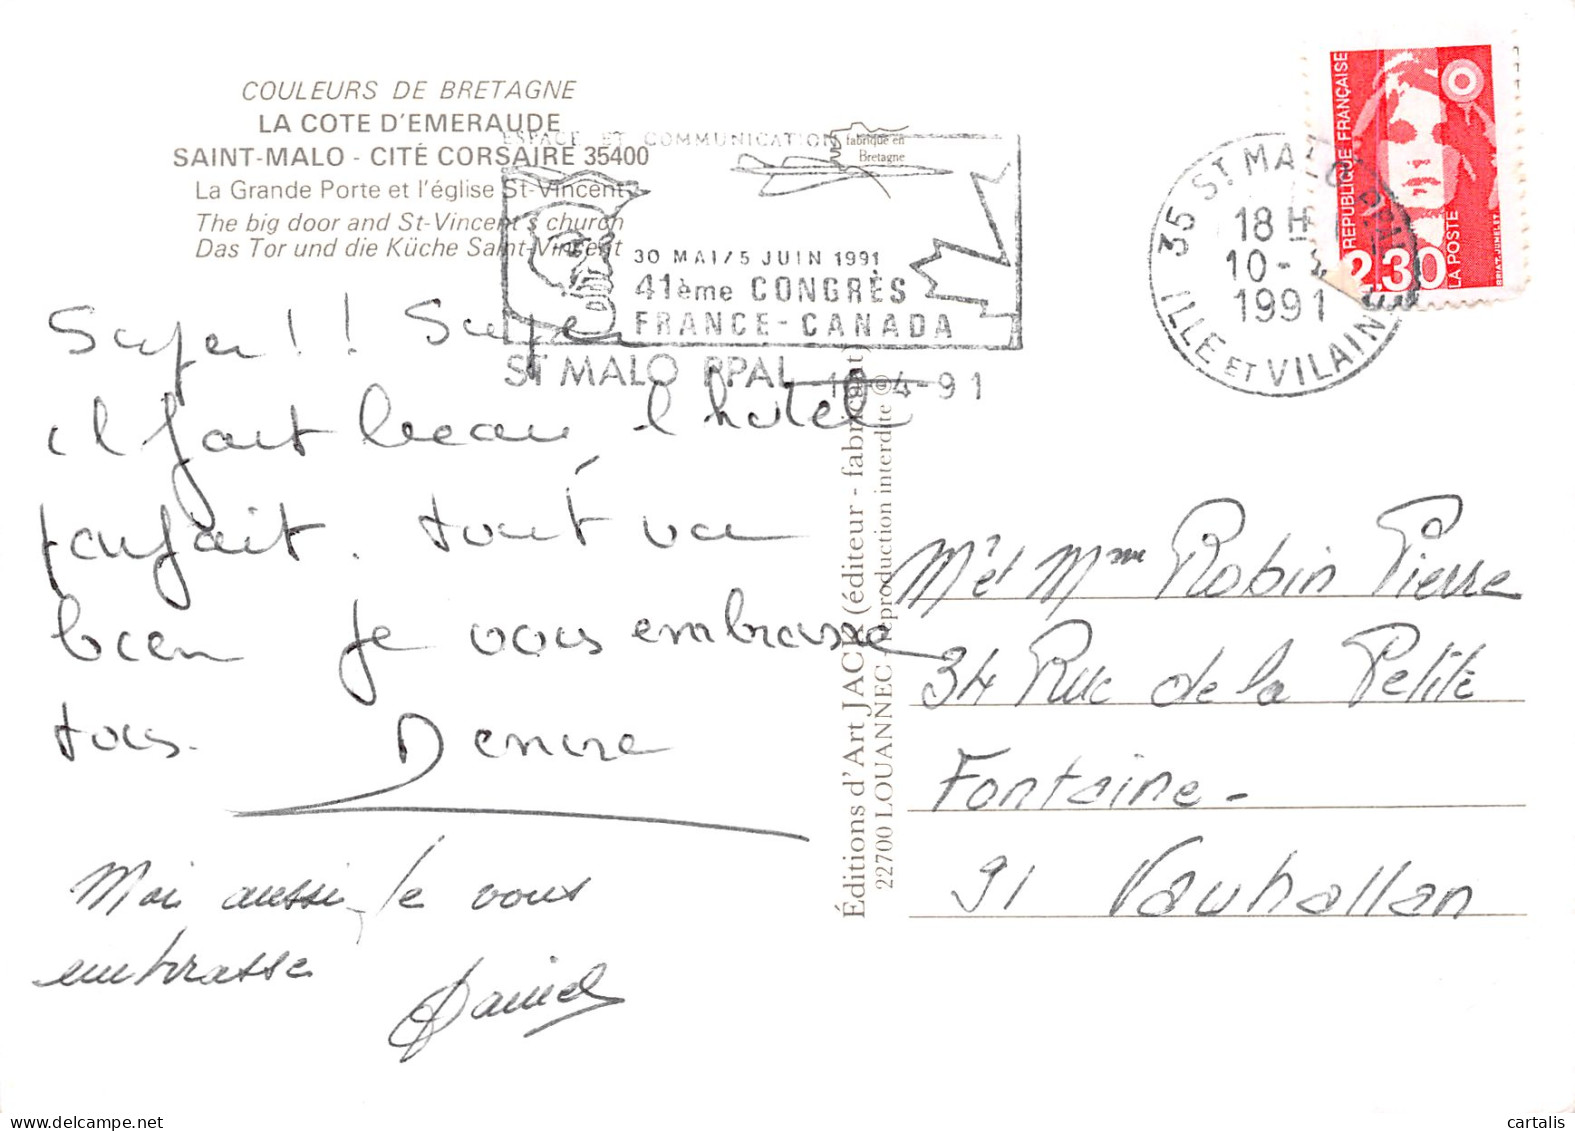 COULEURS DE BRETAGNE
LA COTE D'EMERAUDE
SAINT-MALO - CITÉ CORSAIRE 35400
La Grande Porte et l'église St-Vincent
The big door and St-Vincent's church
Das Tor und die Küche Saint-Vincent
ESPACE ET COMMUNICATION
fabriqué en
Bretagne
30 MAI/5 JUIN 1991
41ème CONGRÈS
FRANCE-CANADA
ST MALO PPAL
-4-91
35 ST MALO
18 H
10-
1991
ILLE ET VILAINE
RÉPUBLIQUE FRANÇAISE
2.30
LA POSTE
BRIAT-JUMELET
Super !! Super
il fait beau l hotel
parfait. tout va
bien je vous embrasse
tous. Denise
Moi aussi, je vous
embrasse
Daniel
Éditions d'Art JACK (éditeur - fabricant)
22700 LOUANNEC - Reproduction interdite ©
Mr et Mme Robin Pierre
34 Rue de la Petite
Fontaine -
91 Vauhallan
cartalis